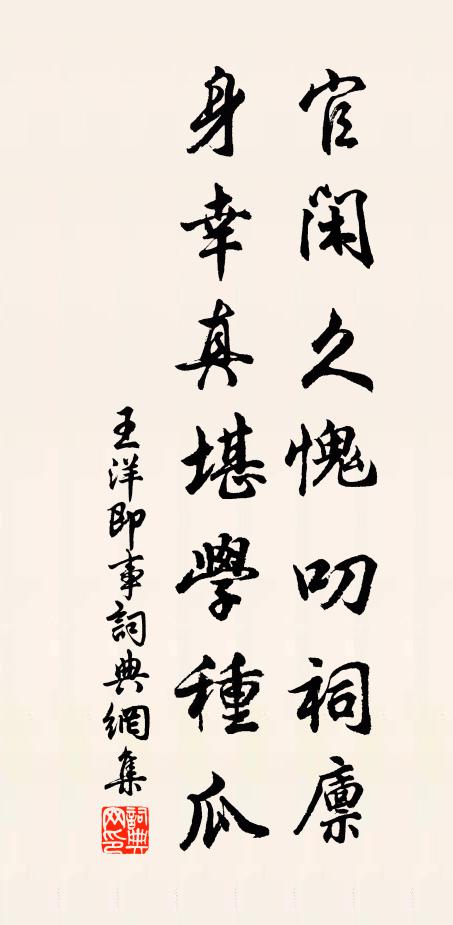 官閑久愧叨祠廩
身幸真堪學種瓜
王洋即事詞典網集
詞典網印